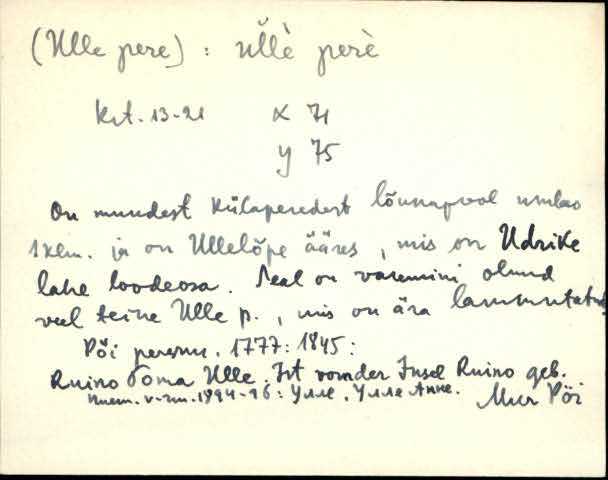 (Ulle pere) : ŭllè perè
krt. 13-21 x 71
y 75
On muudest külaperedest lõunapool umbes
1 klm. ja on Ullelõpe ääres, mis on Udrike
lahe loodeosa. Seal on varemini olnud
veel teine Ulle p., mis on ära lammutatud
Pöi perernu. 1777: 1845:
Ruino Toma Ulle. Ist von der Insel Ruino geb.
v-nu. 1894-96: Улле, Улле Анне. Mur Pöi